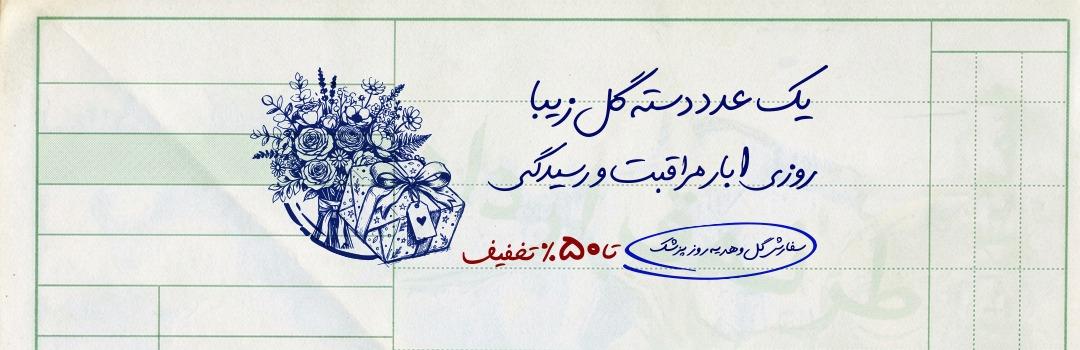 یک عدد دسته گل زیبا
روزی ۱ بار مراقبت و رسیدگی
سفارش گل و هدیه روز پزشک
تا ۵۰٪ تخفیف